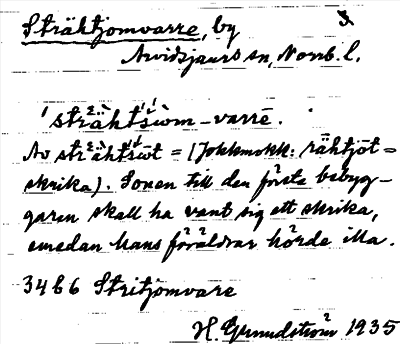 Sträktjomvarre, by
Arvidsjaurs sn, Norrb. l.
'strähtsiom-varrē.
Av strähtsiōt = (Jokkmokk: rähtjōt =
skrika). Sonen till den första bebyg-
garen skall ha vant sig att skrika,
emedan hans föräldrar hörde illa.
34b6 Stritjomvare
H. Grundström 1935